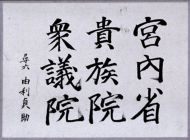 宮内省
貴族院
衆議院
由利貞助